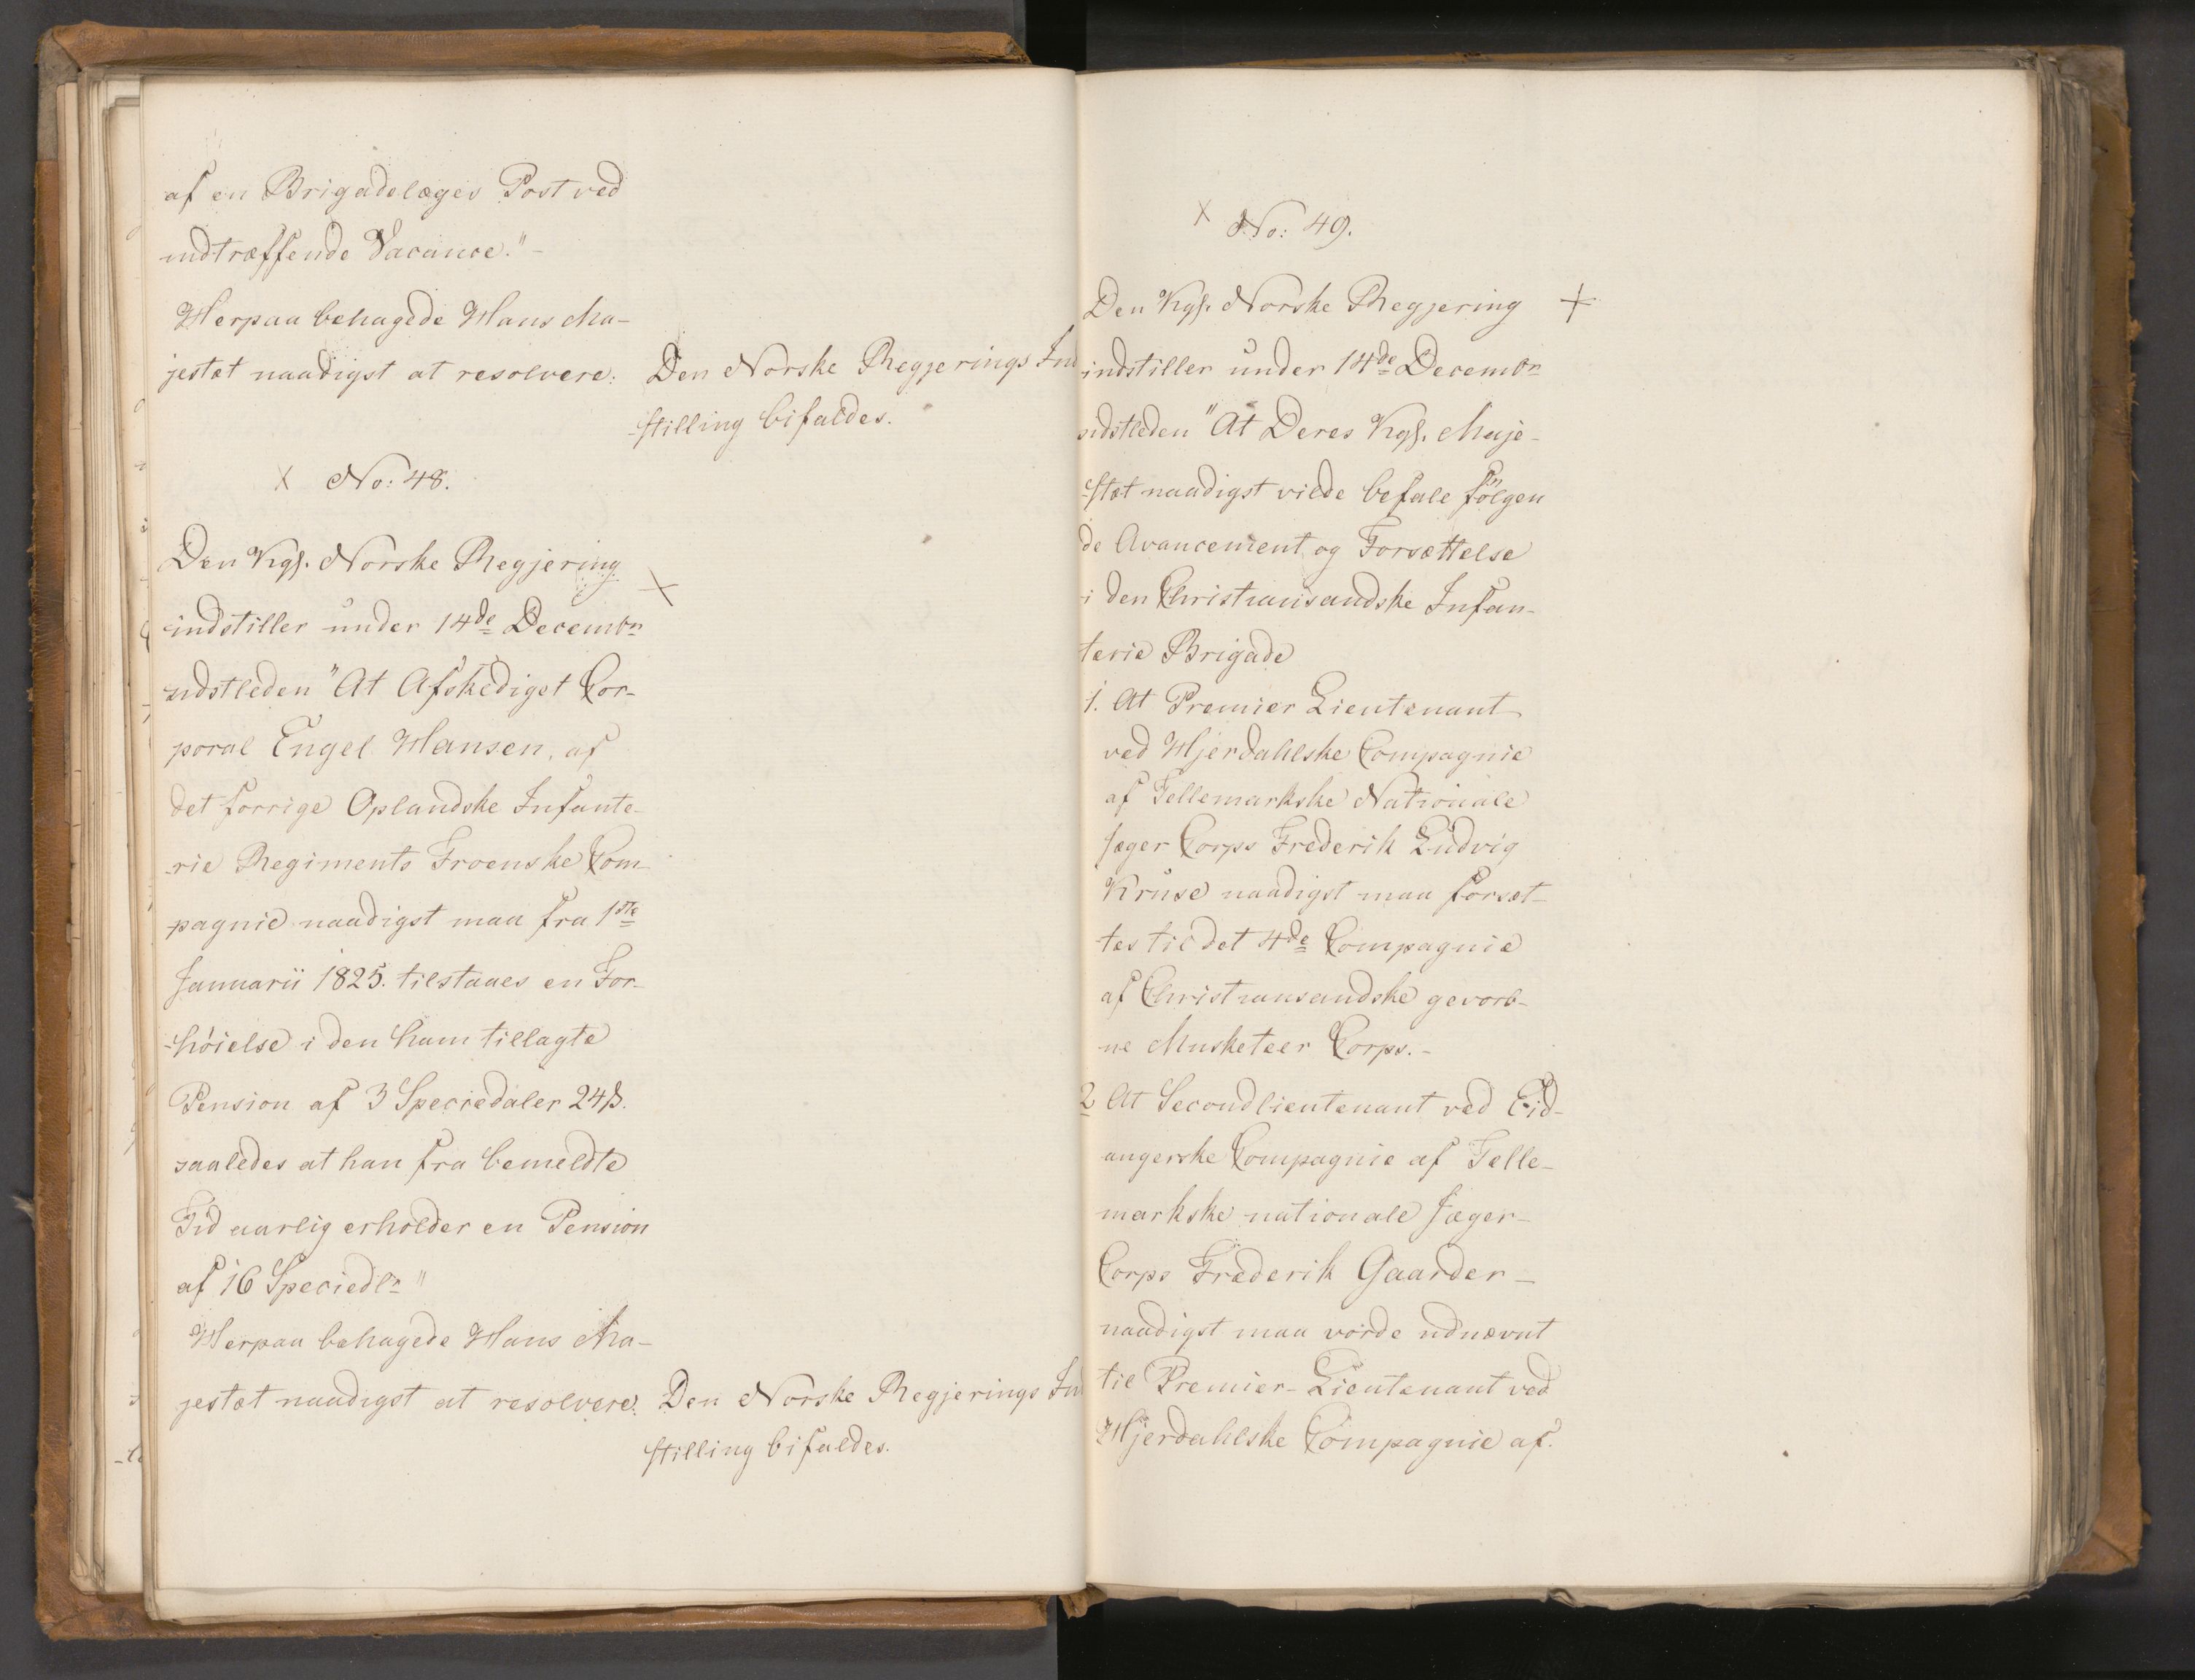 af en Brigadelæges Post ved
indtræffende Vacance."-
Herpaa behagede Hans Ma-
jestæt naadigst at resolvere:
Den Norske Regjerings Ind
-stilling bifaldes.
X No: 48.
Den Kgl. Norske Regjering
X
indstiller under 14de Decembr
sidstleden "At Afskediget Cor-
poral Engel Hansen, af
det forrige Oplandske Infante-
-rie Regiments Froenske Com-
pagnie naadigst maa fra 1ste
Januarii 1825. tilstaaes en For-
-høielse i den ham tillagte
Pension af 3 Speciedaler 24 ß.
saaledes at han fra bemeldte
Tid aarlig erholder en Pension
af 16 Speciedlr"
Herpaa behagede Hans Ma-
jestæt naadigst at resolvere:
Den Norske Regjerings Ind
stilling bifaldes.
X No: 49.
Den Kgl. Norske Regjering +
indstiller under 14de Decembr
sidstleden "At Deres Kgl. Maje-
-stæt naadigst vilde befale følgen
de Avancement og Forsættelse
i den Christiansandske Infan-
terie Brigade
1. At Premier Lieutenant
ved Hjerdahlske Compagnie
af Tellemarkske Nationale
Jæger Corps Frederik Ludvig
Kruse naadigst maa forsæt-
tes til det 4de Compagnie
af Christiansandske gevorb-
ne Musketeer Corps.-
2 At Secondlieutenant ved Eid-
angerske Compagnie af Telle-
markske nationale Jæger-
Corps Frederik Gaarder-
naadigst maa vorde udnævnt
til Premier-Lieutenant ved
Hjerdahlske Compagnie af.